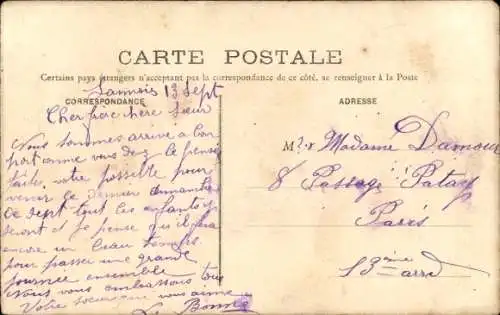 CARTE POSTALE
Certains pays étrangers n'acceptant pas la correspondance de ce côté, se renseigner à la Poste
CORRESPONDANCE
ADRESSE
13 Sept
Cher frère chère Sœur
Nous sommes arrivé a bon
port comme vous
faites votre possible pour
venir le dernier dimanche
de sept tout les enfants y
seront et je pense qu'il fera
encore un beau temps
pour passer une grande
journée ensemble
Nous vous embrassons tous
Votre sœur que vous aime
Mr & Madame Damour
8 Passage Patay
Paris
13ème arrd